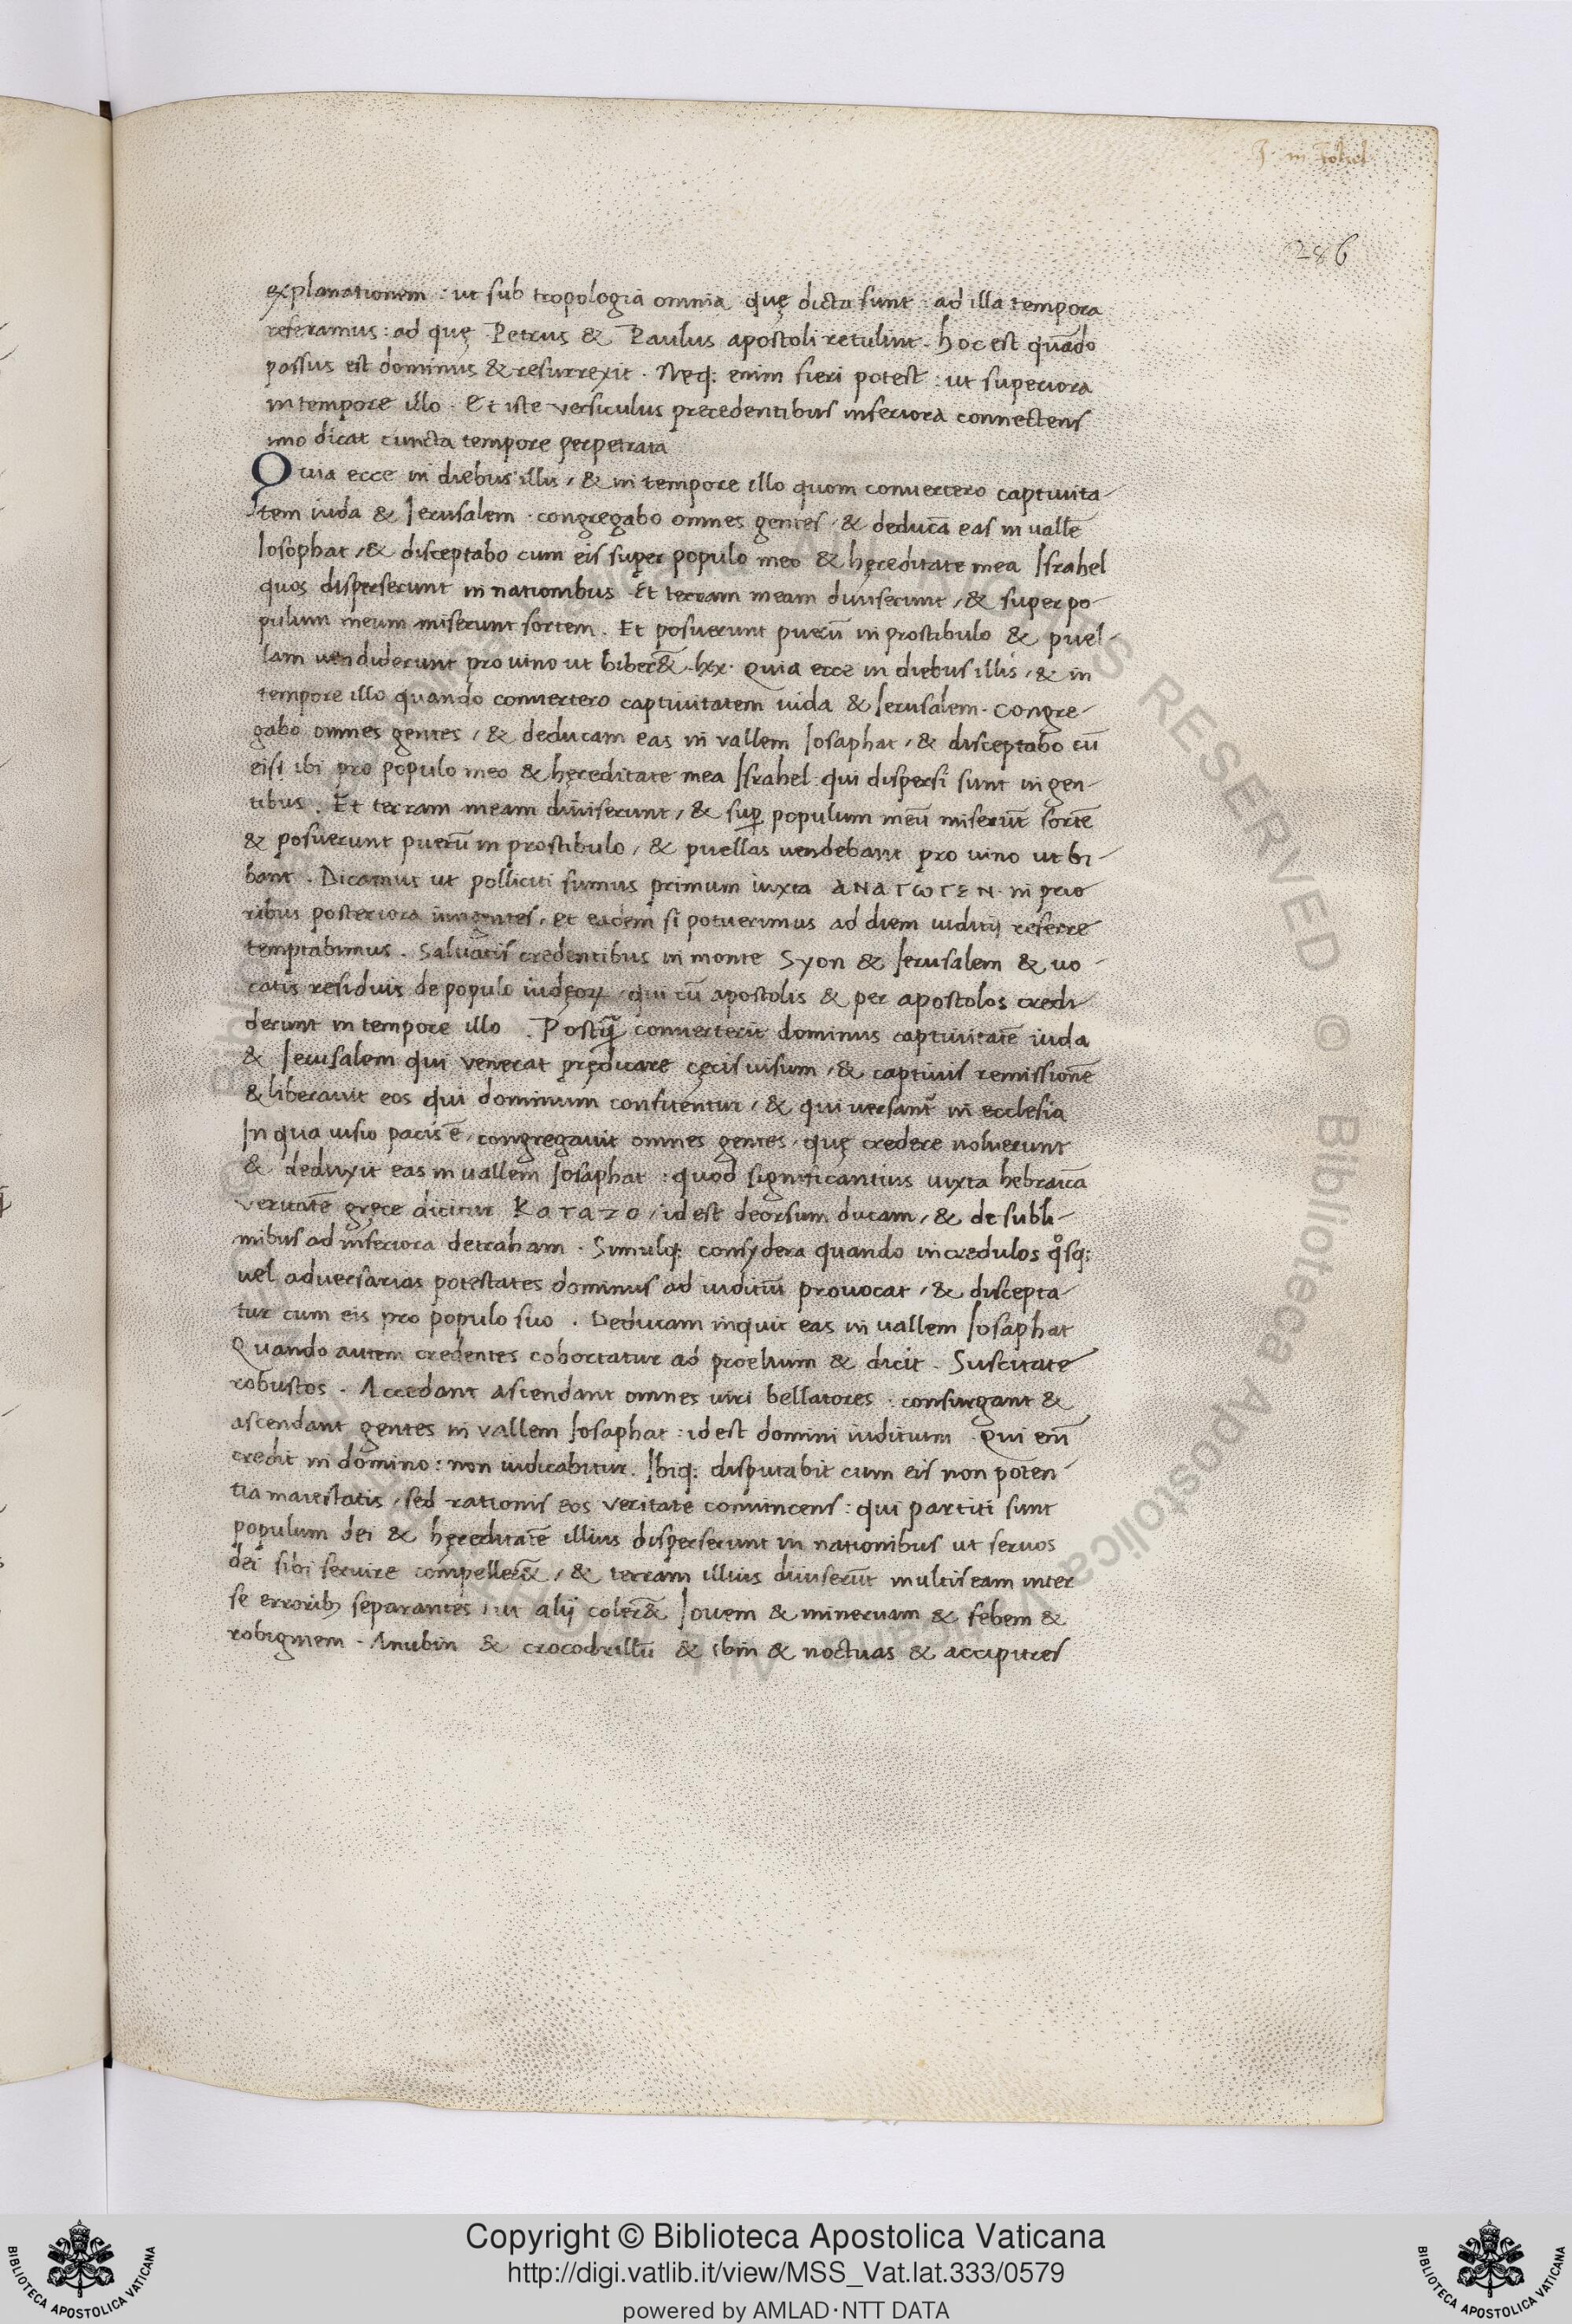 I. in Iohel
286
explanationem : ut sub tropologia omnia quę dicta sunt : ad illa tempora
referamus : ad quę Petrus & Paulus apostoli retulint. hoc est quādo
passus est dominus & resurrexit . Neq; enim fieri potest : ut superiora
in tempore illo . Et iste versiculus precedentibus inferiora connectens
uno dicat cuncta tempore perpetrata
Quia ecce in diebus illis, & in tempore illo quom convertero captivita-
tem iuda & Ierusalem . congregabo omnes gentes, & deducā eas in vallē
Iosophat, & disceptabo cum eis super populo meo & hęreditate mea Israhel
quos disperserunt in nationibus Et terram meam diviserunt, & super po-
pulum meum miserunt sortem. Et posuerunt puerū in prostibulo & puel-
lam vendiderunt pro vino ut biber&̄. lxx. Quia ecce in diebus illis, & in
tempore illo quando convertero captivitatem iuda & Ierusalem. congre-
gabo omnes gentes, & deducam eas in vallem Iosaphat, & disceptabo cū
eisi ibi pro populo meo & hęreditate mea Israhel qui dispersi sunt in gen-
tibus . Et terram meam diviserunt, & suꝑ populum meū miserūt sortē
& posuerunt puerū in prostibulo, & puellas vendebant pro vino ut bi-
bant . Dicamus ut polliciti sumus primum iuxta ΑΝΑΓωΓΕΝ. in prio
ribus posteriora iungentes, et eadem si potuerimus ad diem iuditij referre
temptabimus . Salvatis credentibus in monte Syon & Ierusalem & vo-
catis residuis de populo iudęoꝝ, qui cū apostolis & per apostolos credi-
derunt in tempore illo . Postꝗ̄ converterit dominus captivitatē iuda
& Ierusalem qui venerat pręducare cęcis visum, & captivis remissionē
& liberavit eos qui dominum confitentur, & qui versant̃ in ecclesia
In qua visio pacis ē, congregavit omnes gentes, quę credere noluerunt
& deduxit eas in vallem Iosaphat : quod significantius iuxta hebraicā
veritatē gręce dicitur Kαταζο, id est deorsum ducam, & de subli-
mibus ad inferiora detraham . Simulq; consydera quando incredulos q̊sq;
vel adversarias potestates dominus ad iuditiū provocat, & discepta-
tur cum eis pro populo suo . Deducam inquit eas in vallem Iosaphat
Quando autem credentes cohortatur ad proelium & dicit . Suscitate
robustos . Accedant ascendant omnes viri bellatores : consurgant &
ascendant gentes in vallem Iosaphat : id est domini iuditium . Qui em̄
credit in domino : non iudicabitur. Ibiq; disputabit cum eis non poten-
tia maiestatis, sed rationis eos veritate convincens : qui partiti sunt
populum dei & hęreditatē illius disperserunt in nationibus ut servos
dei sibi servire compeller&̄, & terram illius diviserūt multis eam inter
se erroribꝫ separantes, ut alij coler&̄ Iovem & minervam & febem &
robiginem . Anubin & crocodrillū & ibin & noctuas & accipitres
Copyright © Biblioteca Apostolica Vaticana
http://digi.vatlib.it/view/MSS_Vat.lat.333/0579
powered by AMLAD·NTT DATA
BIBLIOTECA APOSTOLICA VATICANA
BIBLIOTECA APOSTOLICA VATICANA